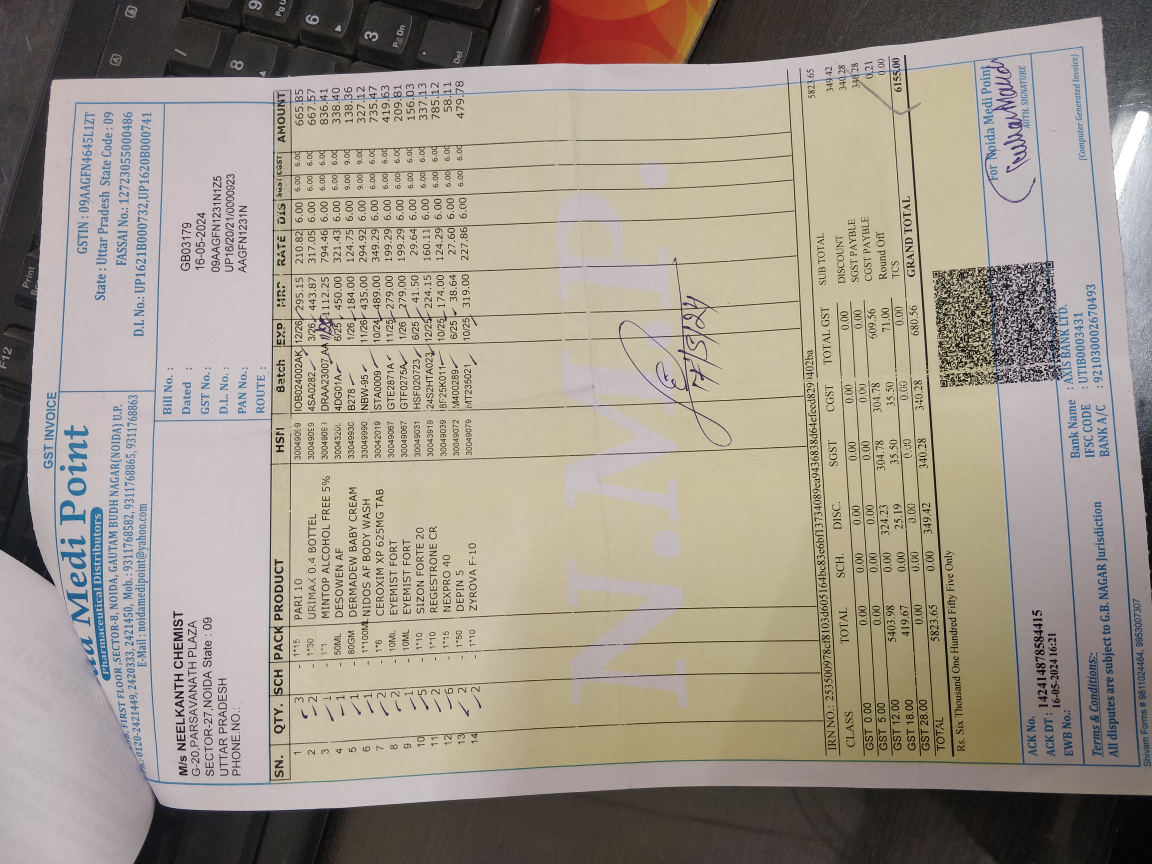 GST INVOICE
Medi Point
Pharmaceutical Distributors
FIRST FLOOR ,SECTOR-8, NOIDA, GAUTAM BUDH NAGAR(NOIDA) U.P.
0120-2421449, 2420333, 2421450, Mob.: 9311768582, 9311768865, 9311768863
E-Mail : noidamedipoint@yahoo.com
GSTIN : 09AAGFN4645L1ZT
State : Uttar Pradesh State Code : 09
FASSAI No.: 12723055000486
D.L No.: UP1621B000732,UP1620B000741
M/s NEELKANTH CHEMIST
G-20,PARSAVANATH PLAZA
SECTOR-27,NOIDA State : 09
UTTAR PRADESH
PHONE.NO.:
Bill No. : GB03179
Dated : 16-05-2024
GST No.: 09AAGFN1231N1Z5
D.L No. : UP16/20/21/0000923
PAN No.: AAGFN1231N
ROUTE :
SN. QTY. SCH PACK PRODUCT HSN Batch EXP MRP RATE DIS SGST CGST AMOUNT
1 3 - 1*15 PARI 10 IOB024002AK 12/26 295.15 210.82 6.00 6.00 6.00 665.85
2 2 - 1*30 URIMAX 0.4 BOTTEL 4SA0282 3/26 443.87 317.05 6.00 6.00 6.00 667.57
3 1 - 1*1 MINTOP ALCOHOL FREE 5% DRAA23007AA 1112.25 794.46 6.00 6.00 6.00 836.41
4 1 - 50ML DESOWEN AF 4DG01A 6/25 450.00 321.43 6.00 6.00 6.00 338.40
5 1 - 80GM DERMADEW BABY CREAM 33049930 B278 1/26 184.00 124.75 6.00 9.00 9.00 138.36
6 1 - 1*100ML NIDOS AF BODY WASH 33049990 NBW-95 11/26 435.00 294.92 6.00 9.00 9.00 327.12
7 2 - 1*6 CEROXIM XP 625MG TAB 30042019 STA0009 10/24 489.00 349.29 6.00 6.00 6.00 735.47
8 2 - 10ML EYEMIST FORT 30049087 GTE2871A 11/25 279.00 199.29 6.00 6.00 6.00 419.63
9 1 - 10ML EYEMIST FORT 30049087 GTF0275A 1/26 279.00 199.29 6.00 6.00 6.00 209.81
10 5 - 1*10 SIZON FORTE 20 30049031 HSF020723 6/25 41.50 29.64 6.00 6.00 6.00 156.03
11 2 - 1*10 REGESTRONE CR 30043919 24S2HTA023 12/25 224.15 160.11 6.00 6.00 6.00 337.13
12 6 - 1*15 NEXPRO 40 30049039 8F25K011 10/25 174.00 124.29 6.00 6.00 6.00 785.12
13 2 - 1*50 DEPIN 5 30049072 M400289 6/25 38.64 27.60 6.00 6.00 6.00 58.11
14 2 - 1*10 ZYROVA F-10 30049079 MT235021 10/25 319.00 227.86 6.00 6.00 6.00 479.78
N.M.P.
17/5/24
IRN NO.:
CLASS TOTAL SCH. DISC. SGST CGST TOTAL GST
GST 0.00 0.00 0.00 0.00 0.00 0.00 0.00
GST 5.00 0.00 0.00 0.00 0.00 0.00 0.00
GST 12.00 5403.98 0.00 324.23 304.78 304.78 609.56
GST 18.00 419.67 0.00 25.19 35.50 35.50 71.00
GST 28.00 0.00 0.00 0.00 0.00 0.00 0.00
TOTAL 5823.65 0.00 349.42 340.28 340.28 680.56
SUB TOTAL 5823.65
DISCOUNT 349.42
SGST PAYBLE 340.28
CGST PAYBLE 340.28
Round Off 0.21
TCS 0.00
GRAND TOTAL 6155.00
Rs. Six Thousand One Hundred Fifty Five Only
ACK No. 142414878584415
ACK DT : 16-05-2024 16:21
EWB No.:
Terms & Conditions:-
All disputes are subject to G.B. NAGAR Jurisdiction
Bank Name : AXIS BANK LTD.
IFSC CODE : UTIB0003431
BANK A/C : 921030002670493
For Noida Medi Point
AUTH. SIGNATURE
(Computer Generated Invoice)
Shivam Forms # 9811024484, 9953007307
Print
F12
9
Pg U
6
3
Pg Dn
8
/
Del